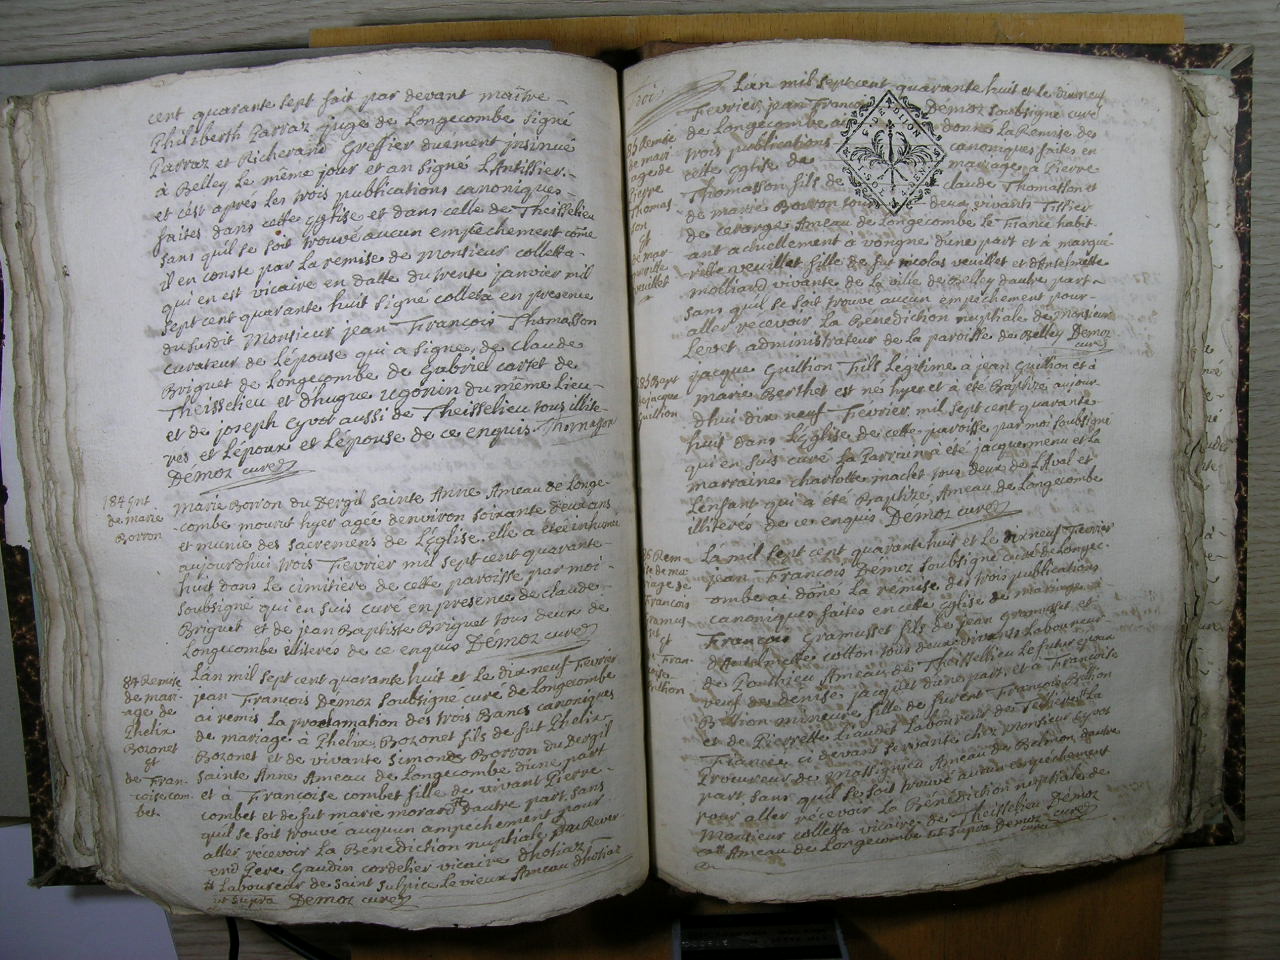 cent quarante sept fait par devant maître
Philiberth Parraz juge de Longecombe signé
Parraz et Richerand Greffier duement insinué
à Belley le même jour et an signé
et c'est après les trois publications canoniques
faites dans cette Eglise et dans celle de Theisselieu
sans qu'il se soit trouvé aucun empêchement côme
il en conste par la remise de monsieur colletta
qui en est vicaire en datte du trente janvier mil
sept cent quarante huit signé colleta en presence
du susdit Monsieur jean François Thomasson
curateur de l'épouse qui a signé, de claude
Briguet de Longecombe de Gabriel cartet de
Theisselieu et d'hugue ugonin du même Lieu
et de joseph cyvot aussi de Theisselieu tous illite-
res et l'époux et l'épouse de ce enquis. Thomasson
Démoz curé
184 Ent
de marie
Borron
marie Borron du Dergil Sainte Anne Ameau de Longe-
combe mourut hyer agée d'environ soixante deux ans
et munie des sacremens de L'église. elle a été inhumée
aujourdhui trois Fievrier mil sept cent quarante
huit dans le cimitière de cette paroisse par moi
soubsigné qui en suis curé en presence de claude
Briguet et de jean Baptiste Briguet tous deux de
Longecombe illiteres de ce enquis Démoz curé
84 Remise
de mari-
age de
Phelix
Bozonet
et
de Fran-
coise com-
bet.
Lan mil sept cent quarante huit et le dix neuf Fievrier
jean François Démoz soubsigné curé de Longecombe
ai remis La proclamation des trois Bancs canoniques
de mariage à Phelix Bozonet fils de fut Phelix
Bozonet et de vivante Simonde Borron du Dergil
Sainte Anne Ameau de Longecombe d'une part
et à Françoise combet fille de vivant Pierre
combet et de fut marie morard # d'autre part, sans
qu'il se soit trouvé auquun ampêchement pour
aller recevoir La Benediction nuptiale du Rever-
end Gaudin cordelier vicaire d'hotiaz
# Laboureur de Saint Sulpice Le vieux Ameau d'hotiaz
ut supra Démoz curé
Trois
85 Remise
de mari-
age de
Pierre
Thomas-
son
et
de mar-
guerite
veuillet
Lan mil sept cent quarante huit et le dix neuf
Fievrier jean François Démoz soubsigné curé
de Longecombe ai donné La Remise des
trois publications canoniques faites en
cette Eglise de mariage à Pierre
Thomasson fils de claude Thomasson et
de marie Borron tous deux vivants
de Ameau de Longecombe Le Francé habit-
ant actuellement à vongne d'une part et à margue-
ritte veuillet fille de fut nicolas veuillet et d'Antelmette
molliard vivante de La ville de Belley d'autre part
sans qu'il se soit trouvé aucun empêchement pour
aller recevoir La Bénédiction nuptiale de Monsieur
administrateur de la paroisse de Belley Démoz
curé
85 Bapt
de jacque
Guillion
jacque Guillion Fils Légitime à jean Guillion et à
marie Berthet est né hyer et à été Baptizé aujour-
dhui dix neuf Fievrier mil sept cent quarante
huit dans L'Eglise de cette paroisse par moi soubsigné
qui en suis curé La Parrain a été jacque menu et La
marraine charlotte maclet tous deux de Laval et
Lenfant qui a été Baptizé Ameau de Longecombe
illiteres de ce enquis. Démoz curé
86 Rem-
ise de ma-
riage de
François
Gramus-
set et
de Fran-
çoise
Brithon
La mil sept cent quarante huit et le dix neuf Fievrier
jean François Démoz soubsigné curé de Longec-
ombe ai doné La remise des trois publications
canoniques faites en cette Eglise de mariage à
François Gramusset fils de jean Gramusset et
d'Antelmette cotton tous deux vivants Laboureur
de Ponthieu Ameau de Theisselieu Le futur epoux
veuf de denise jacquet d'une part et à Françoise
Brithon mineure fille de furent François Brithon
et de Pierrette Liaudet Laboureur des #La
Fiancée ci devant servante chez monsieur Cyvot
Procureur de Massignieu Ameau de Belmon d'autre
part, sans qu'il se soit trouvé aucun empechement
pour aller recevoir La Bénédiction nuptiale de
Montieur colletta vicaire de Theisselieu Démoz
curé
# Ameau de Longecombe ut supra Démoz curé